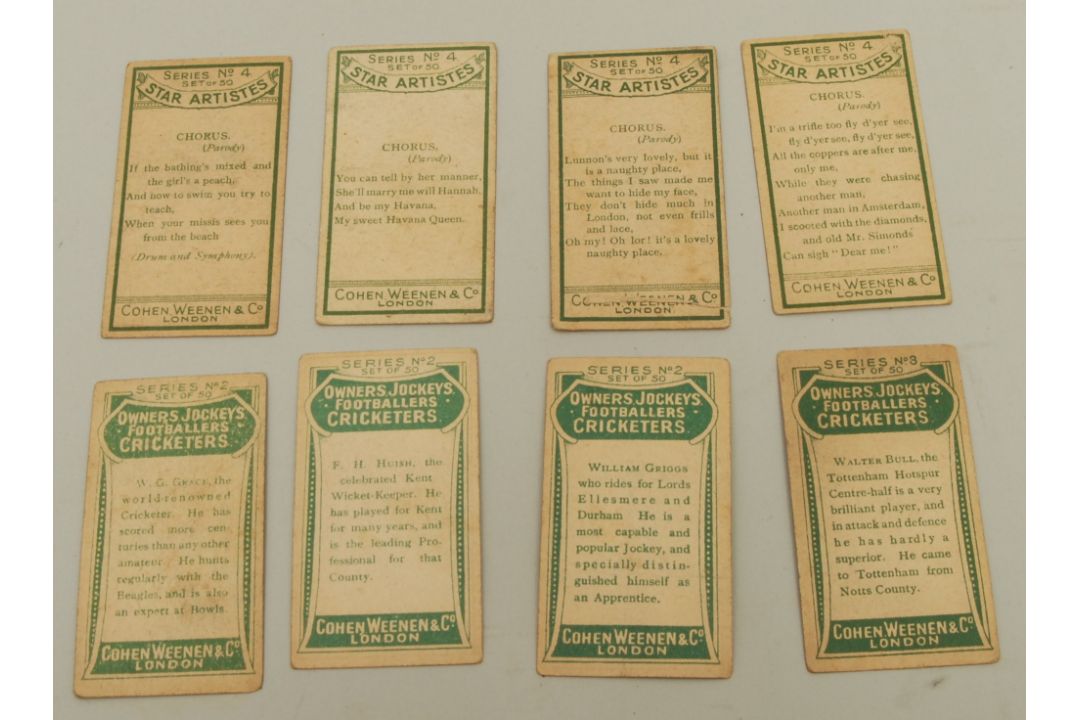 SERIES Nº 4
SET OF 50
STAR ARTISTES
CHORUS.
(Parody)
If the bathing's mixed and
the girl's a peach,
And how to swim you try to
teach,
When your missis sees you
from the beach
(Drum and Symphony).
COHEN WEENEN & Cº
LONDON
SERIES Nº 4
SET OF 50
STAR ARTISTES
CHORUS.
(Parody)
You can tell by her manner,
She'll marry me will Hannah,
And be my Havana,
My sweet Havana Queen.
COHEN WEENEN & Cº
LONDON
SERIES Nº 4
SET OF 50
STAR ARTISTES
CHORUS.
(Parody)
Lunnon's very lovely, but it
is a naughty place,
The things I saw made me
want to hide my face,
They don't hide much in
London, not even frills
and lace,
Oh my! Oh lor! it's a lovely
naughty place,
COHEN WEENEN & Cº
LONDON.
SERIES Nº 4
SET OF 50
STAR ARTISTES
CHORUS.
(Parody)
I'm a trifle too fly d'yer see,
fly d'yer see, fly d'yer see,
All the coppers are after me,
only me,
While they were chasing
another man,
Another man in Amsterdam,
I scooted with the diamonds,
and old Mr. Simonds
Can sigh "Dear me!"
COHEN WEENEN & Cº
LONDON
SERIES Nº 2
SET OF 50
OWNERS, JOCKEYS
· FOOTBALLERS ·
CRICKETERS
W. G. GRACE, the
world-renowned
Cricketer. He has
scored more cen-
turies than any other
amateur. He hunts
regularly with the
Beagles, and is also
an expert at Bowls.
COHEN WEENEN & Cº
LONDON
SERIES Nº 2
SET OF 50
OWNERS, JOCKEYS
· FOOTBALLERS ·
CRICKETERS
F. H. HUISH, the
celebrated Kent
Wicket-Keeper. He
has played for Kent
for many years, and
is the leading Pro-
fessional for that
County.
COHEN WEENEN & Cº
LONDON
SERIES Nº 2
SET OF 50
OWNERS, JOCKEYS
· FOOTBALLERS ·
CRICKETERS
WILLIAM GRIGGS
who rides for Lords
Ellesmere and
Durham He is a
most capable and
popular Jockey, and
specially distin-
guished himself as
an Apprentice.
COHEN WEENEN & Cº
LONDON
SERIES Nº 3
SET OF 50
OWNERS, JOCKEYS
· FOOTBALLERS ·
CRICKETERS
WALTER BULL, the
Tottenham Hotspur
Centre-half is a very
brilliant player, and
in attack and defence
he has hardly a
superior. He came
to Tottenham from
Notts County.
COHEN WEENEN & Cº
LONDON